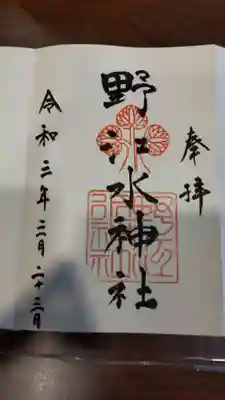 奉拝
野江水神社
令和三年三月二十三日